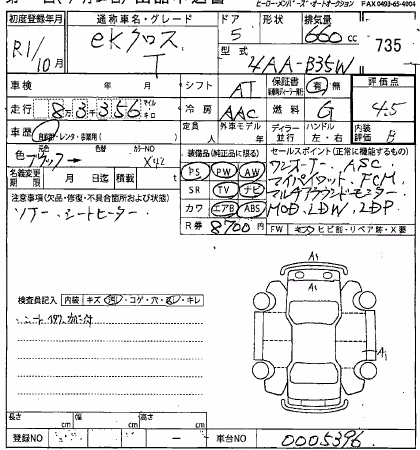 ヒーローメンバーズ・オートオークション FAX 0493-65-4004
初度登録年月 通称車名・グレード ドア 形状 排気量
R1/10月 eKクロス T 5 660cc 735
型式 4AA-B35W
車検 年 月 シフト AT 保証書 有 無 評価点
走行 8万3千356 マイル キロ 冷房 AAC 燃料 G 4.5
車歴 自家用・レンタ・事業用 定員 人 外車モデル ディーラー 並行 ハンドル 左・右 内装評価 B
色 元色 ブラック→ 色替 カラーNO X42
装備品(純正品に限る) セールスポイント(正常に機能するもの)
名義変更期限 月 日迄 積載
PS PW AW
SR TV ナビ
カワ エアB ABS
R券 8700円
ワンオーナー、ASC
マイパイロット、FCM
マルチアラウンドモニター
MOD、LDW、LDP
注意事項(欠品・修復・不具合箇所および状態)
ワナー、シートヒーター
FW キズ・ヒビ割・リペア跡・X要
検査員記入 内装 キズ・汚・コゲ・穴・スレ・キレ
A1
A1
A1
長さ cm 幅 cm 高さ cm
登録NO 車台NO 0005396